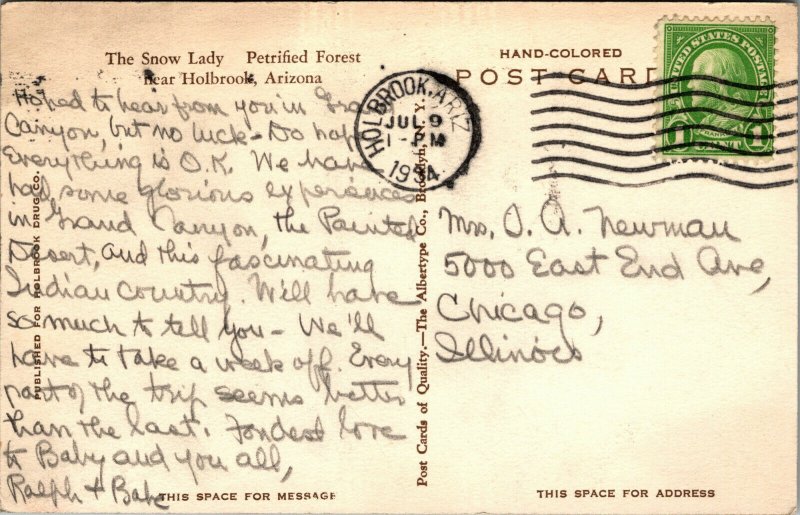 The Snow Lady Petrified Forest
near Holbrook, Arizona
Hoped to hear from you in Grand
Canyon, but no luck - Do hope
Everything is O.K. We have
had some glorious experiences
in Grand Canyon, the Painted
Desert, and this fascinating
Indian Country. We'll have
so much to tell you - We'll
have to take a week off. Every
part of the trip seems better
than the last. Fondest love
to Baby and you all,
Ralph + Babe
THIS SPACE FOR MESSAGE
PUBLISHED FOR HOLBROOK DRUG CO.
Post Cards of Quality.—The Albertype Co., Brooklyn, N. Y.
HAND-COLORED
POST CARD
HOLBROOK, ARIZ
JUL 9
1 - PM
1934
UNITED STATES POSTAGE
FRANKLIN
1 CENT 1
Mrs. O. A. Newman
5000 East End Ave,
Chicago,
Illinois
THIS SPACE FOR ADDRESS